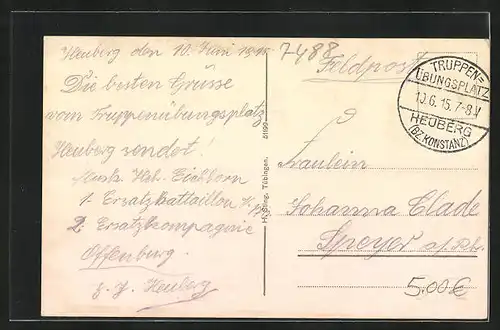 Heuberg den 10. Juni 1915
Die besten Grüsse
vom Truppenübungsplatz
Heuberg sendet!
Eichborn
1. Ersatzbattaillon
2. Ersatzkompagnie
Offenburg.
z. Z. Heuberg
7488
Feldpost
TRUPPEN=
ÜBUNGSPLATZ
10.6.15. 7-8.V
HEUBERG
(BZ. KONSTANZ)
Tübingen.
Fräulein
Johanna Clade
Speyer a/Rh.
5.00€